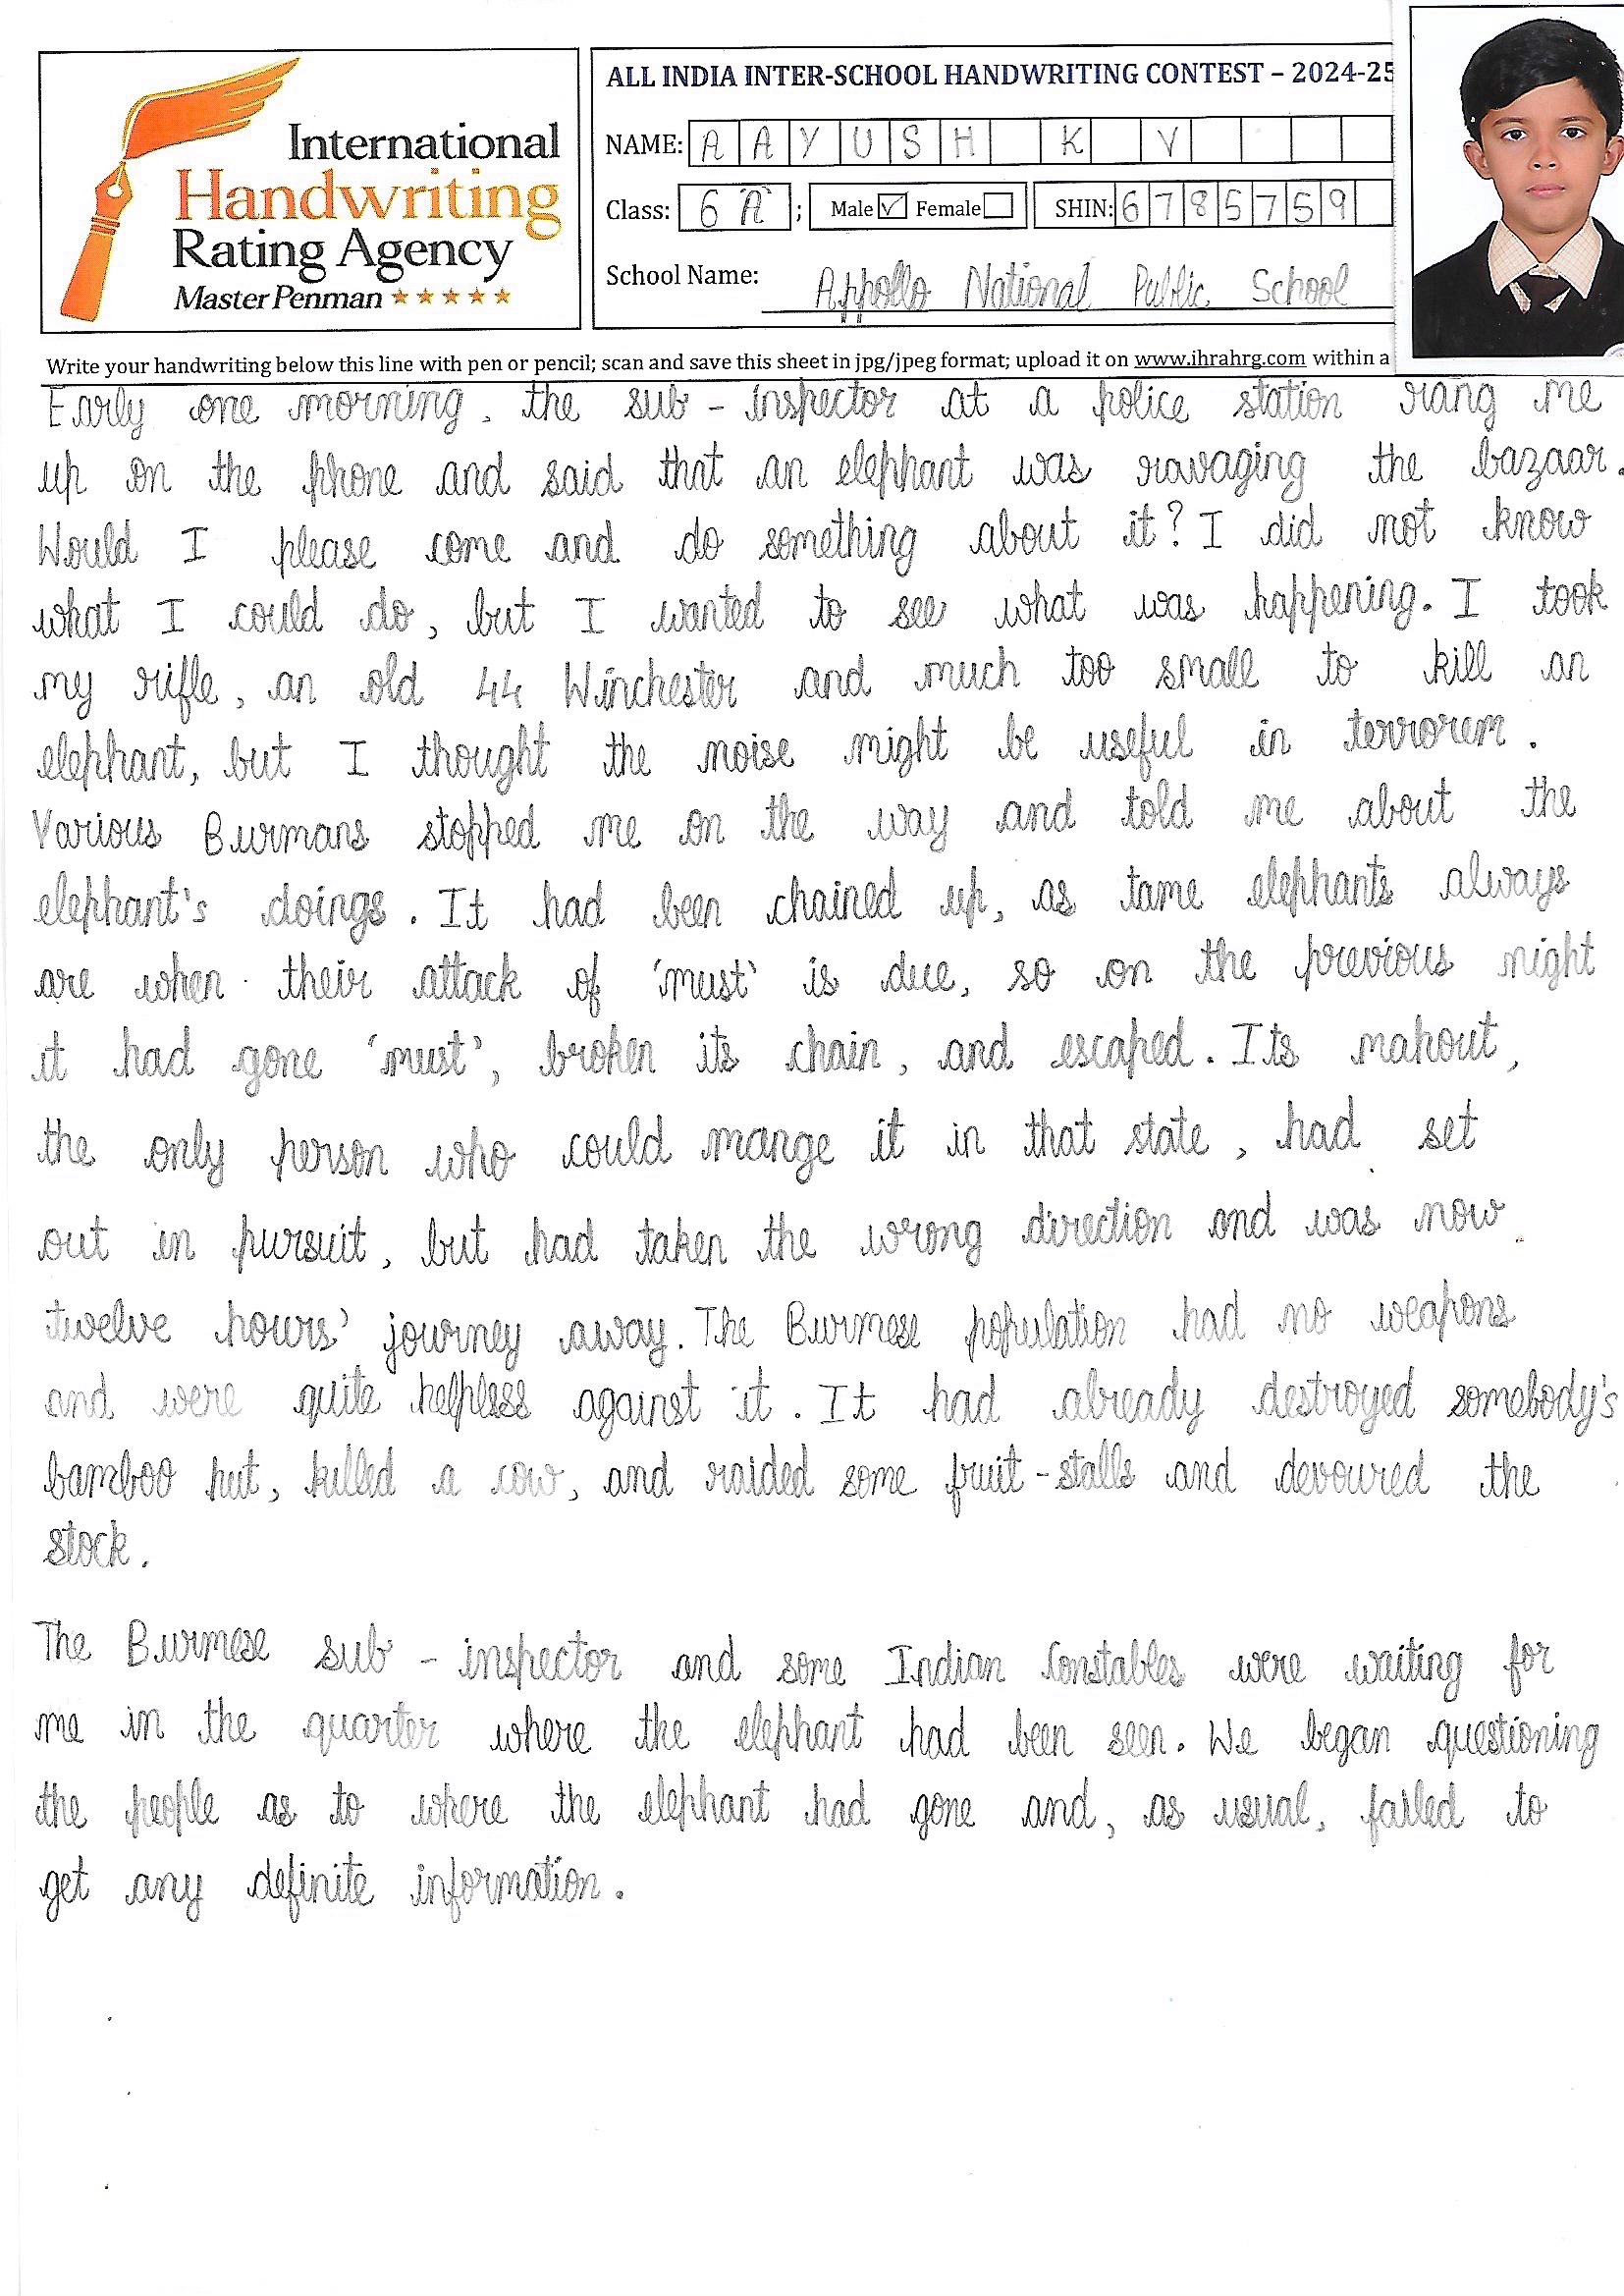 International
Handwriting
Rating Agency
Master Penman
ALL INDIA INTER-SCHOOL HANDWRITING CONTEST – 2024-25
NAME: AAYUSH K V
Class: 6 'A' ; Male ✓ Female SHIN: 6785759
School Name: Appollo National Public School
Write your handwriting below this line with pen or pencil; scan and save this sheet in jpg/jpeg format; upload it on www.ihrahrg.com within a
Early one morning, the sub - inspector at a police station rang me
up on the phone and said that an elephant was ravaging the bazaar.
Would I please come and do something about it? I did not know
what I could do, but I wanted to see what was happening. I took
my rifle, an old 44 Winchester and much too small to kill an
elephant, but I thought the noise might be useful in terrorem.
Various Burmans stopped me on the way and told me about the
elephant's doings. It had been chained up, as tame elephants always
are when their attack of 'must' is due, so on the previous night
it had gone 'must', broken its chain, and escaped. Its mahout,
the only person who could mange it in that state, had set
out in pursuit, but had taken the wrong direction and was now
twelve hours' journey away. The Burmese population had no weapons
and were quite helpless against it. It had already destroyed somebody's
bamboo hut, killed a cow, and raided some fruit-stalls and devoured the
stock.
The Burmese sub - inspector and some Indian Constables were waiting for
me in the quarter where the elephant had been seen. We began questioning
the people as to where the elephant had gone and, as usual, failed to
get any definite information.